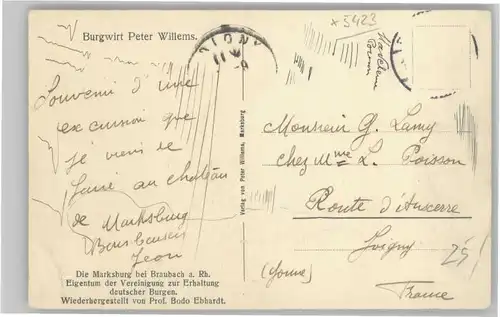 Burgwirt Peter Willems.
* 5423
Souvenir d'une
excursion que
je viens de
faire au château
de Marksburg
Jean
Die Marksburg bei Braubach a. Rh.
Eigentum der Vereinigung zur Erhaltung
deutscher Burgen.
Wiederhergestellt von Prof. Bodo Ebhardt.
Verlag von Peter Willems, Marksburg
Monsieur G. Lamy
chez Mme L. Poisson
Route d'Auxerre
Joigny
(Yonne)
France
25